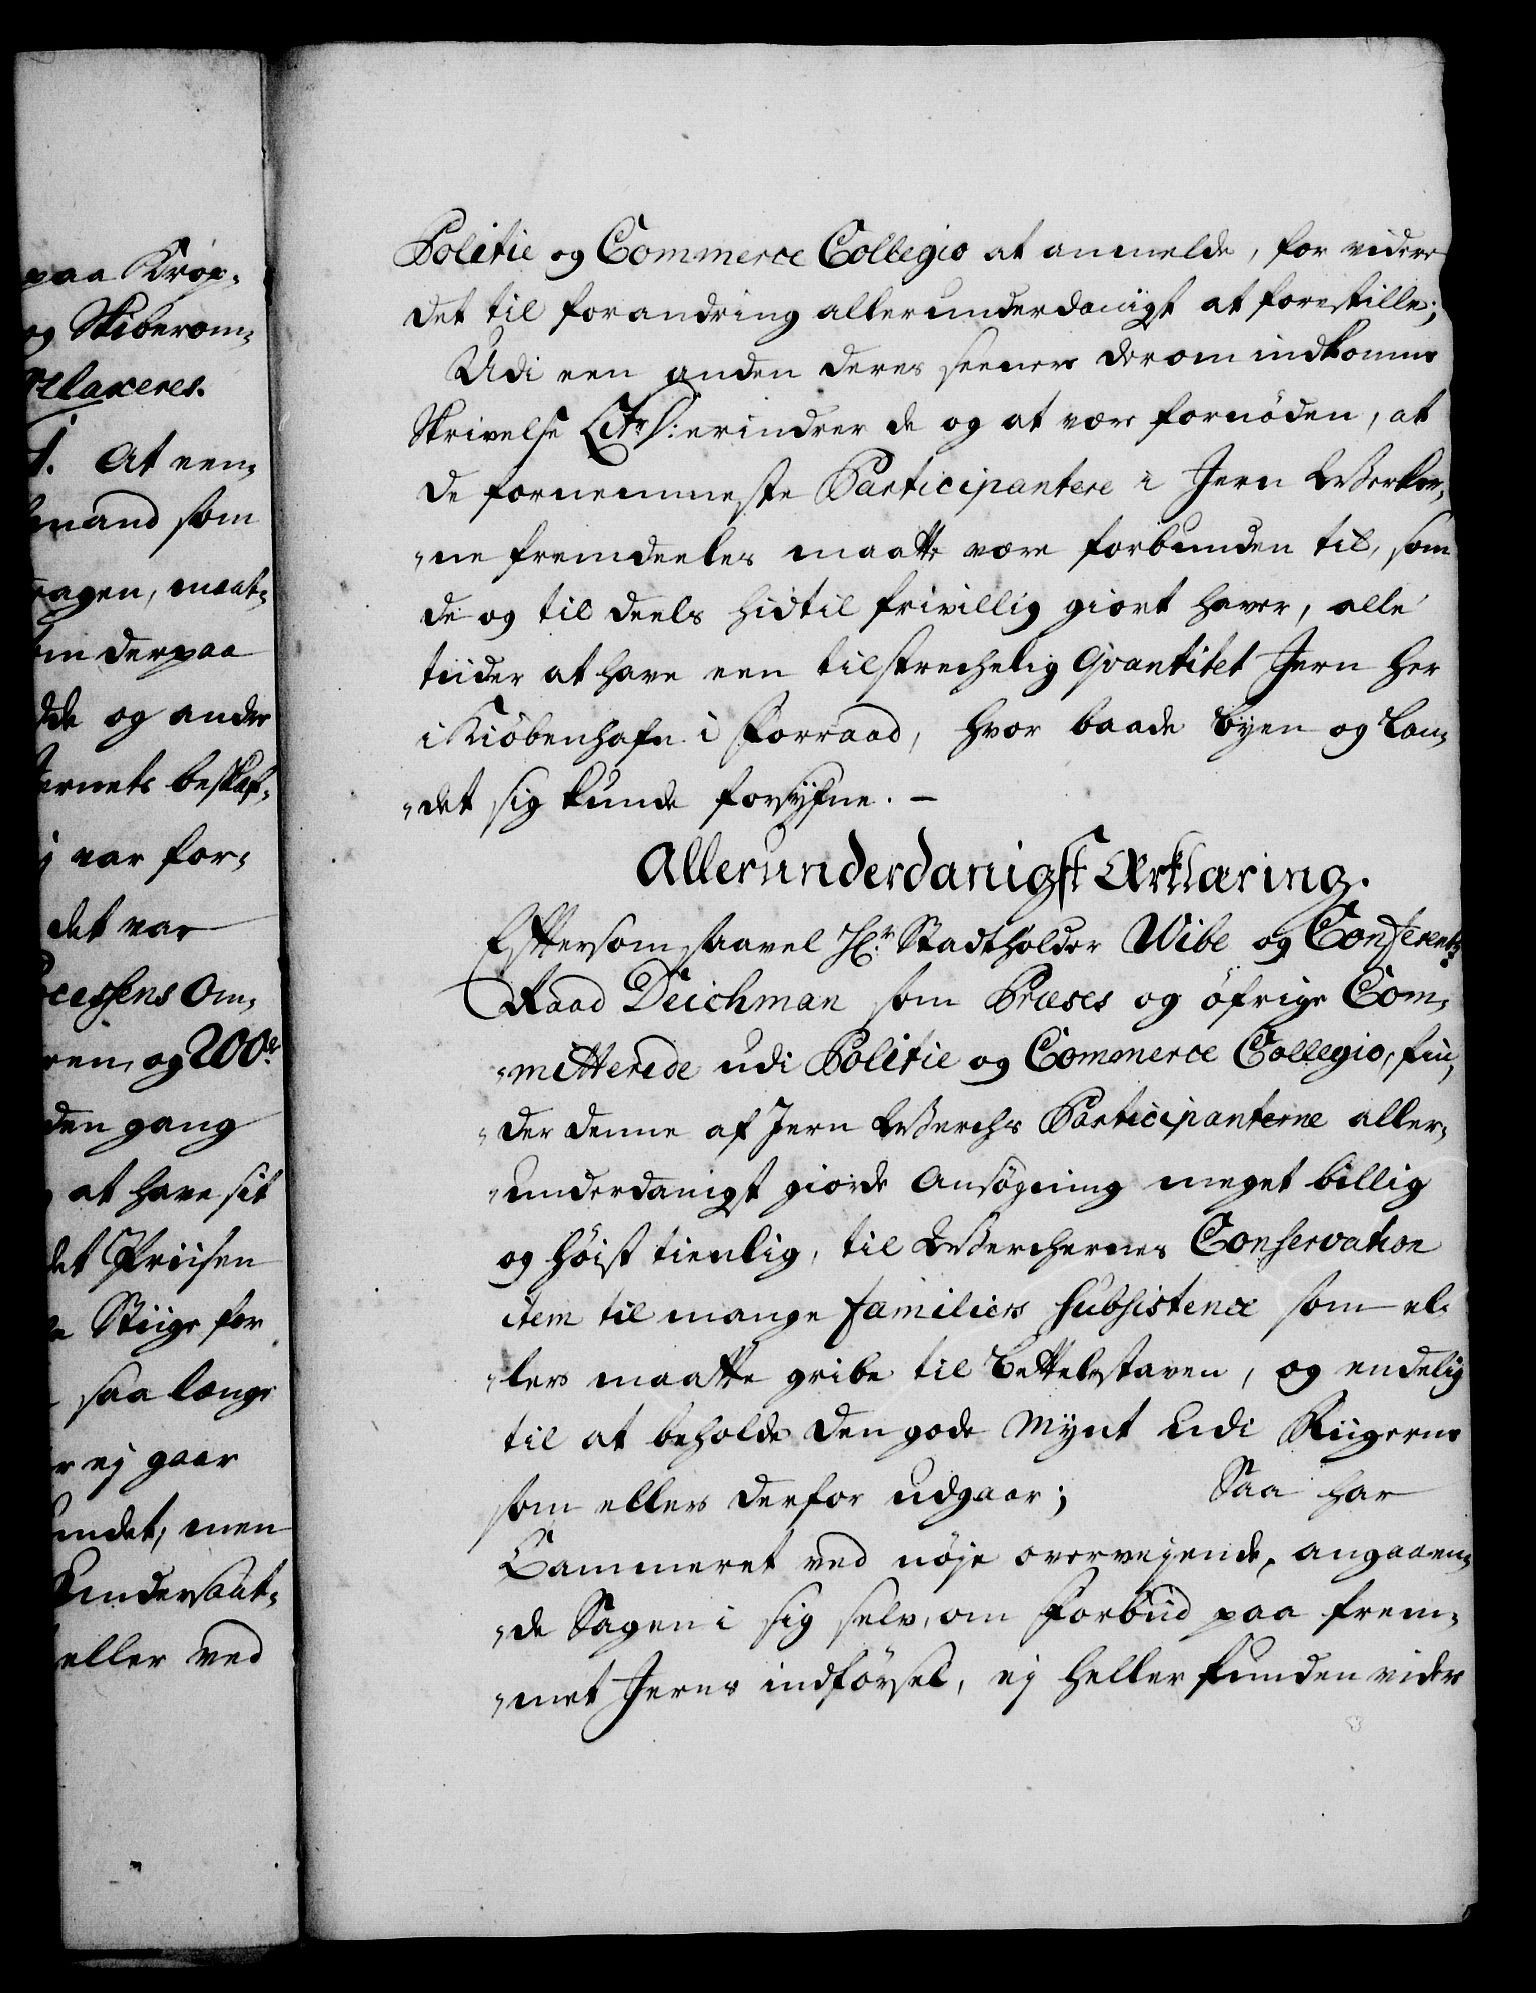 paa Krop-
og Skiberom-
Relaxeres.
1. At een-
mand som
sagen, maat-
om derpaa
dde og andre
Jernets beskaf-
j var for-
det var
ocessens Om-
ren, og 200 r
den gang
at have sit
det Priisen
Stiige for
saa længe
r ej gaar
undet, men
Undersaat-
eller ved
Politie og Commerce Collegio at anmelde, for videre
det til forandring allerunderdanigst at forestille;
Udi een anden deres seenere derom indkomne
Skrivelse Litr S: erindrer de og at være fornöden, at
de fornemmeste Participantere i Jern Werker-
"ne fremdeeles maatte være forbunden til, som
de og til deels hidtil frivillig giort haver, alle
tiider at have een tilstrechelig Qvantitet Jern her
i Kiöbenhafn i Forraad, hvor baade Byen og Lan-
"det sig kunde forsyfne. –
Allerunderdanigst Erklæring.
Eftersom saavel Hr. Stadtholder Wibe og Conferentz
Raad Deichman som Præses og öfrige Com-
"mitterede udi Politie og Commerce Collegio, fin-
"der denne af Jern Werchs Participanterne aller-
"underdanigst giorde Ansögning meget billig
og höist tienlig, til Werchernes Conservation
item til mange familiers Subsistence som el-
"lers maatte gribe til Bettelstaven, og endelig
til at beholde den gode Mynt udi Riigerne
som ellers derfor udgaar; Saa har
Cammeret ved nöje overvejende, angaaen-
"de Sagen i sig selv, om Forbud paa frem-
"met Jerns indförsel, ej heller funden videre